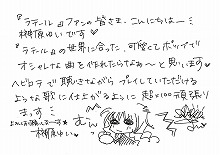 『ラテール』ファンの皆さま、こんにちはー!
榊原ゆいです♥
『ラテール』の世界に合った、可愛くてポップで
オシャレな曲を作れたらなぁ〜と思います♥
ヘビロテで聴きながらプレイしていただける
ような歌に仕上がるように超×100頑張り
まっす!
榊原ゆい♥